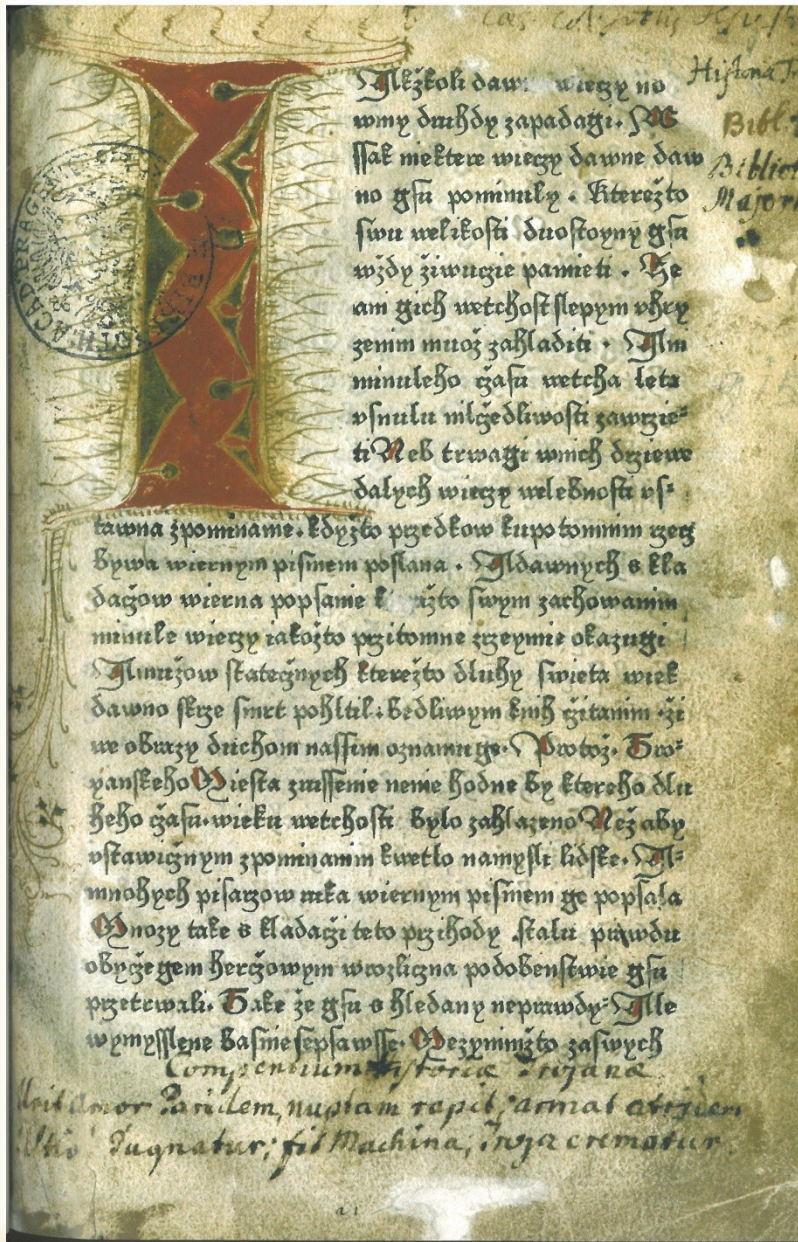 Cas
Histona
Bibl
Bibliot
Major
BIBLIOTH: ACAD: PRAGENS
I
Alkžkoli dawn wieczy no
wmy druhdy zapadagi. W
ssak niektere wieczy dawne daw
no gsu pominuly. Kterežto
swu welikosti duostoyny gsu
wždy žiwucie pamieti. Ze
am gich wetchost slepym vhry
zenim muož zahladiti. Am
minuleho czasu wetcha leta
vsnulu mlczedliwosti zawrzie-
ti Neb trwagi wnich drziewe
dalych wieczy welebnosti vs-
tawna zpominanie. kdyžto przedkow kupotomnim rzecz
bywa wiernym pismem poslana. Adawnych s kla
daczow wierna popsanie k ražto swym zachowanim
minule wieczy iakožto przitomne zrzeymie okazugi
Amužow stateczných kterežto dluhy swieta wiek
dawno skrze smrt pohltil. bedliwym knih czitanim. ži
we obrazy duchom nassim oznamuge. Protož. Tro-
yanskeho Miesta zrussenie nenie hodne by ktereho dlu
heho czasu. wieku wetchosti bylo zahlazeno Než aby
vstawicznym zpominanim kwetlo namysli lidske. A-
mnohych pisarzow ruka wiernym pismem ge popsala
Mnozy take s kladaczi teto przihody stalu prawdu
obyczegem herczowym wrozliczna podobenstwie gsu
przetrwali. Take že gsu s hledany neprawdy- Alle
wymysslene basnie sepsawsse. Mezynimižto zaswych
Compendium Historiæ Trojanæ
Urit amor Paridem, nuptam rapit, armat atriden
Ultio Pugnatur; fit Machina, Troja crematur.
a 1